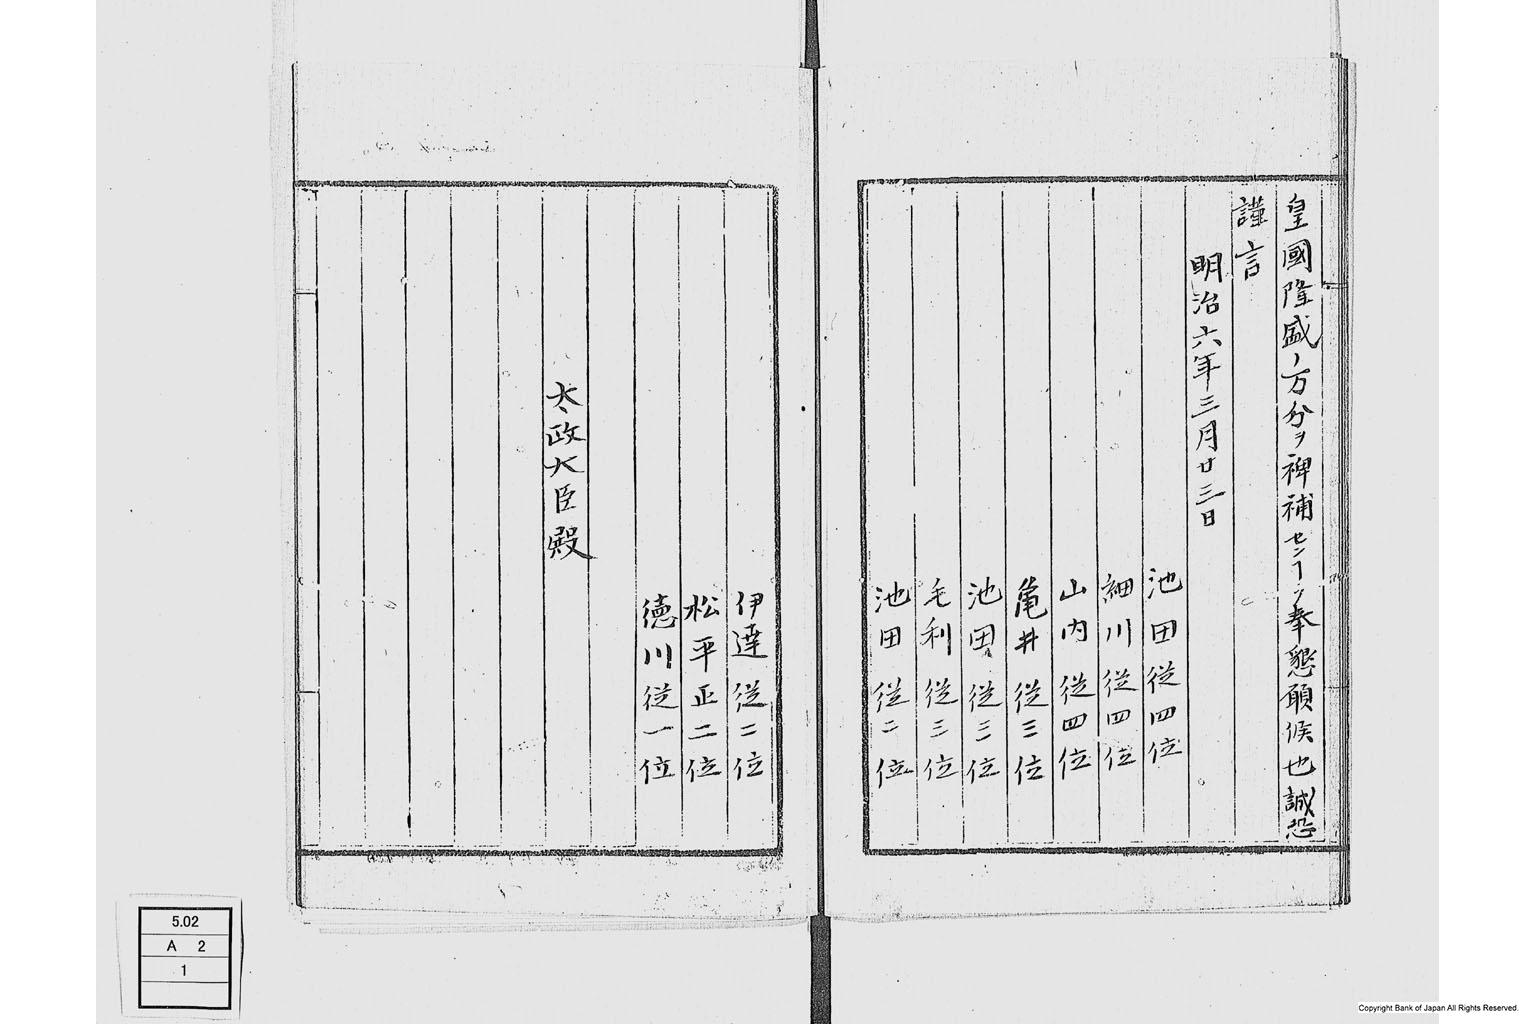 皇國隆盛ノ万分ヲ裨補センヿヲ奉懇願候也誠恐
謹言
明治六年三月廿三日
池田従四位
細川従四位
山内従四位
亀井従三位
池田従三位
毛利従三位
池田従二位
伊達従二位
松平正二位
徳川従一位
太政大臣殿
5.02
A 2
1
Copyright Bank of Japan All Rights Reserved.